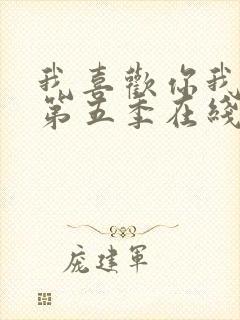 我喜歡你我
第五季在綫
庞建軍